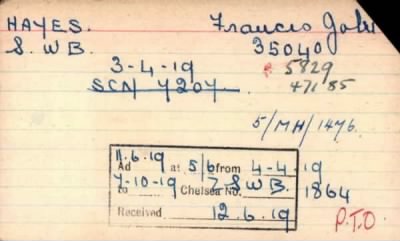 HAYES. Francis John
S. W B. 35040
3-4-19 P. 5829
SCN 7207 47185
5/MH/1476.
11.6.19
Ad at 5/6 from 4-4-19
7-10-19
to Chelsea No. 7 S W B. 1864
Received 12.6.19
P.T.O.